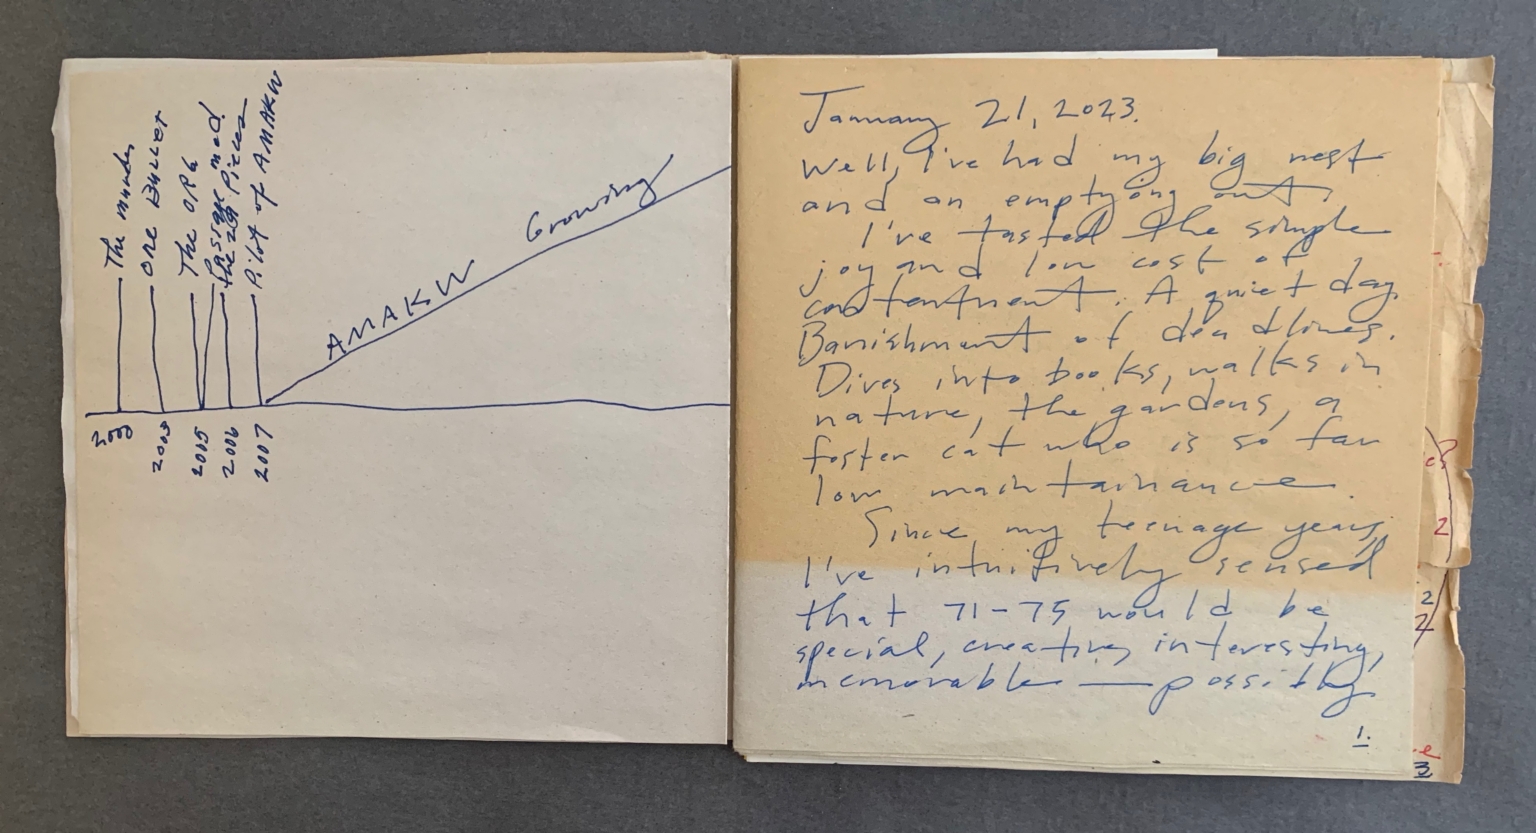 The murder
ONE BULLET
The OPh
Passage Pmed.
the 209 Pieces
Pilot of AMAKW
AMAKW Growing
2003
2005
2006
2007
January 21, 2023.
Well, I've had my big rest
and an emptying out,
I've tasted the simple
joy and low cost of
contentment. A quiet day.
Banishment of deadlines.
Dives into books, walks in
nature, the gardens, a
foster cat who is so far
low maintainance.
Since my teenage years,
I've intuitively sensed
that 71-75 would be
special, creative, interesting,
memorable — possibly
1.
2
2
2
3